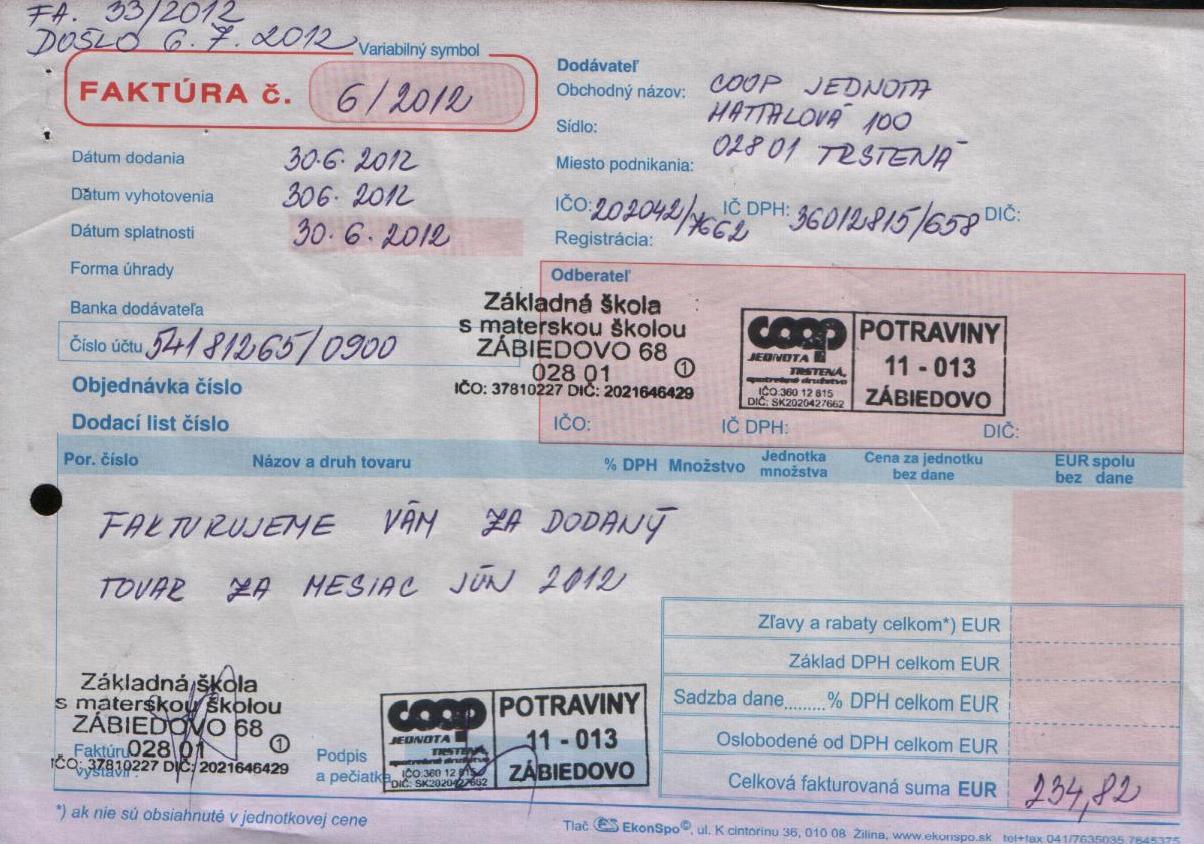 FA. 33/2012
DOŠLO 6.7.2012
Variabilný symbol
FAKTÚRA č. 6/2012
Dátum dodania 30.6. 2012
Dátum vyhotovenia 306. 2012
Dátum splatnosti 30.6.2012
Forma úhrady
Banka dodávateľa
Číslo účtu 54181265/0900
Objednávka číslo
Dodací list číslo
Dodávateľ
Obchodný názov: COOP JEDNOTA
Sídlo: HATTALOVÁ 100
Miesto podnikania: 02801 TRSTENÁ
IČO: 202042/7662 IČ DPH: 36012815/658 DIČ:
Registrácia:
Odberateľ
Základná škola
s materskou školou
ZÁBIEDOVO 68
028 01 1
IČO: 37810227 DIČ: 2021646429
COOP
JEDNOTA
TRSTENÁ,
spotrebné družstvo
IČO:360 12 815
DIČ: SK2020427662
POTRAVINY
11 - 013
ZÁBIEDOVO
IČO: IČ DPH: DIČ:
Por. číslo Názov a druh tovaru % DPH Množstvo Jednotka množstva Cena za jednotku bez dane EUR spolu bez dane
FAKTURUJEME VÁM ZA DODANÝ
TOVAR ZA MESIAC JÚN 2012
Zľavy a rabaty celkom*) EUR
Základ DPH celkom EUR
Sadzba dane.........% DPH celkom EUR
Oslobodené od DPH celkom EUR
Celková fakturovaná suma EUR 234,82
Základná škola
s materskou školou
ZÁBIEDOVO 68
028 01 1
IČO: 37810227 DIČ: 2021646429
Faktúru
vystavil:
Podpis
a pečiatka
COOP
JEDNOTA
TRSTENÁ,
spotrebné družstvo
IČO:360 12 815
DIČ: SK2020427662
POTRAVINY
11 - 013
ZÁBIEDOVO
*) ak nie sú obsiahnuté v jednotkovej cene
Tlač ES EkonSpo©, ul. K cintorínu 36, 010 08 Žilina, www.ekonspo.sk tel+fax 041/7635035, 7645375